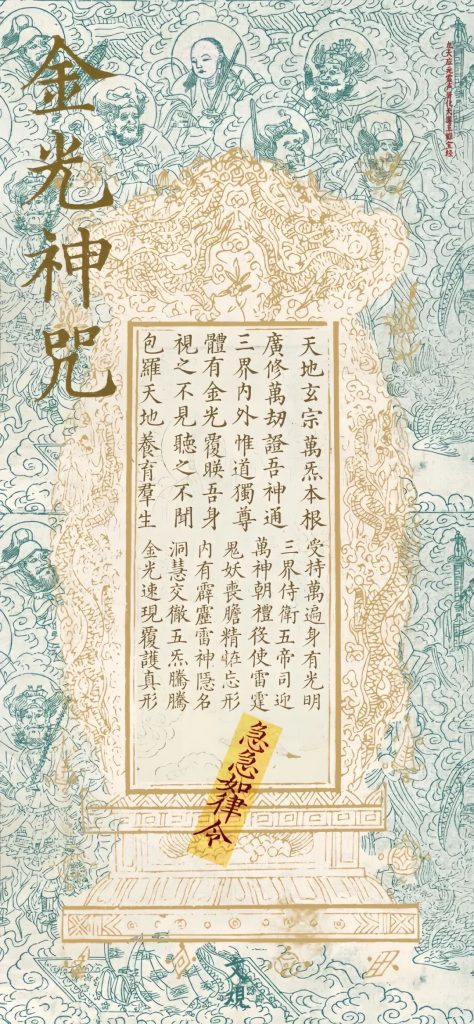 金光神咒
九天應元雷聲普化天尊玉樞寶經
天地玄宗萬炁本根
廣修萬劫證吾神通
三界內外惟道獨尊
體有金光覆暎吾身
視之不見聽之不聞
包羅天地養育羣生
受持萬遍身有光明
三界侍衛五帝司迎
萬神朝禮役使雷霆
鬼妖喪膽精恠忘形
內有霹靂雷神隱名
洞慧交徹五炁騰騰
金光速現覆護真形
急急如律令